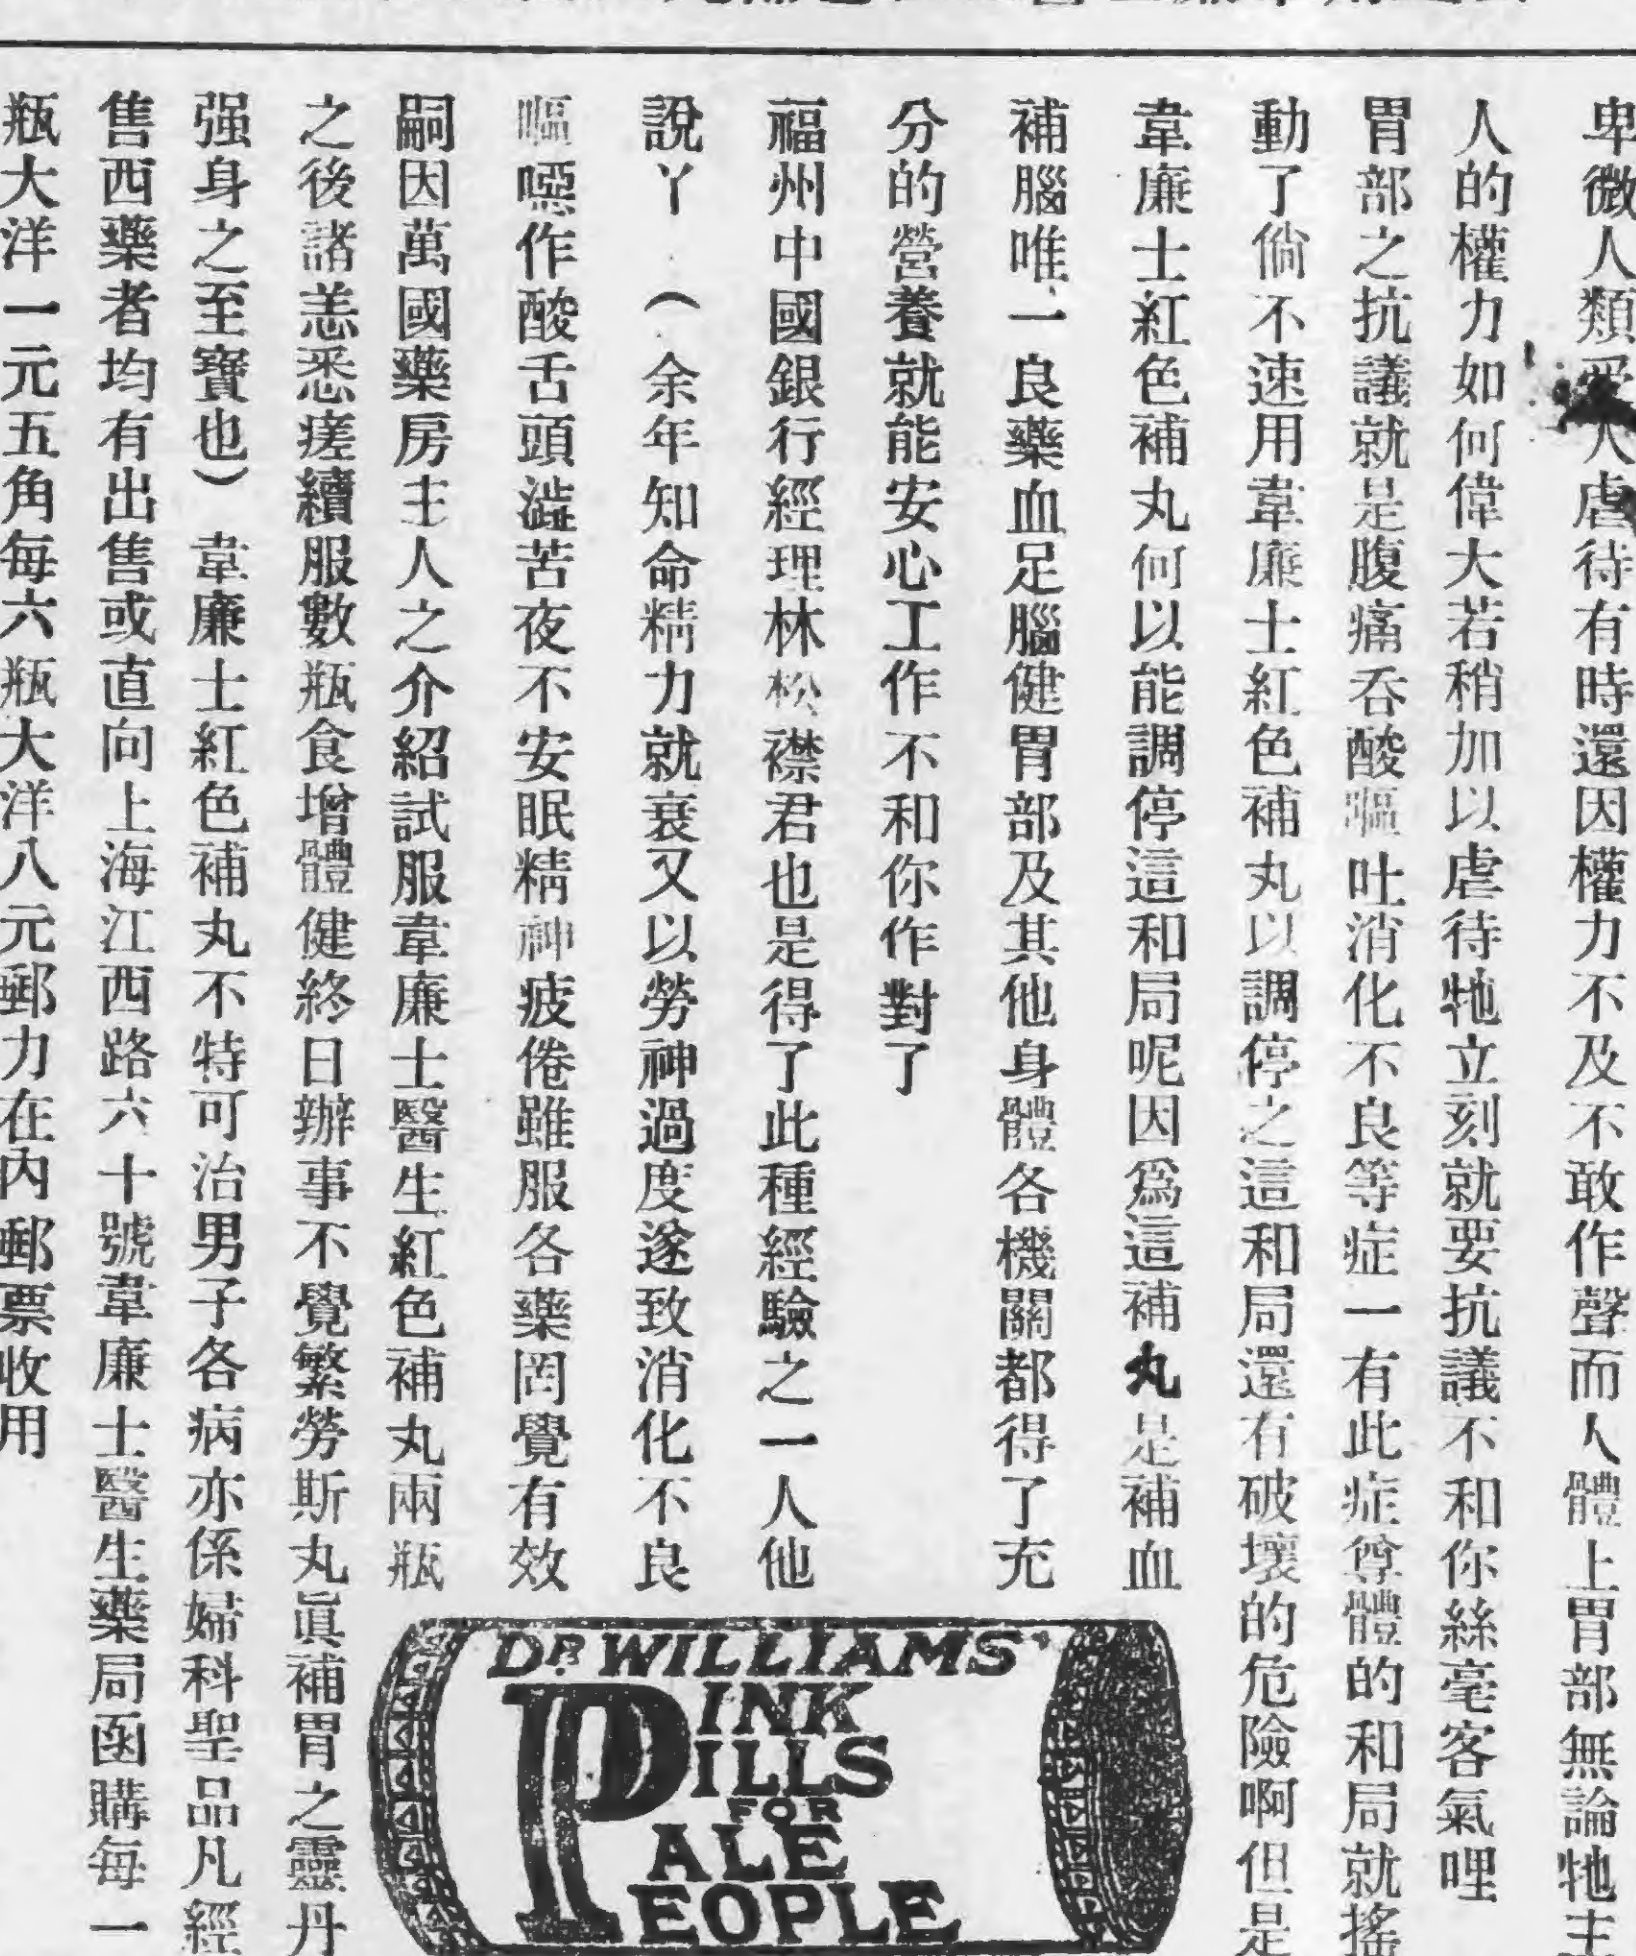 卑微人類受人虐待有時還因權力不及不敢作聲而人體上胃部無論牠主
人的權力如何偉大若稍加以虐待牠立刻就要抗議不和你絲毫客氣哩
胃部之抗議就是腹痛吞酸嘔吐消化不良等症一有此症尊體的和局就搖
動了倘不速用韋廉士紅色補丸以調停之這和局還有破壞的危險啊但是
韋廉士紅色補丸何以能調停這和局呢因爲這補丸是補血
補腦唯一良藥血足腦健胃部及其他身體各機關都得了充
分的營養就能安心工作不和你作對了
福州中國銀行經理林松襟君也是得了此種經驗之一人他
說丫（余年知命精力就衰又以勞神過度遂致消化不良
嘔噁作酸舌頭澁苦夜不安眠精神疲倦雖服各藥罔覺有效
嗣因萬國藥房主人之介紹試服韋廉士醫生紅色補丸兩瓶
之後諸恙悉瘥續服數瓶食增體健終日辦事不覺繁勞斯丸眞補胃之靈丹
强身之至寶也）韋廉士紅色補丸不特可治男子各病亦係婦科聖品凡經
售西藥者均有出售或直向上海江西路六十號韋廉士醫生藥局函購每一
瓶大洋一元五角每六瓶大洋八元郵力在內郵票收用
DR WILLIAMS'
PINK
PILLS
FOR
PALE
PEOPLE